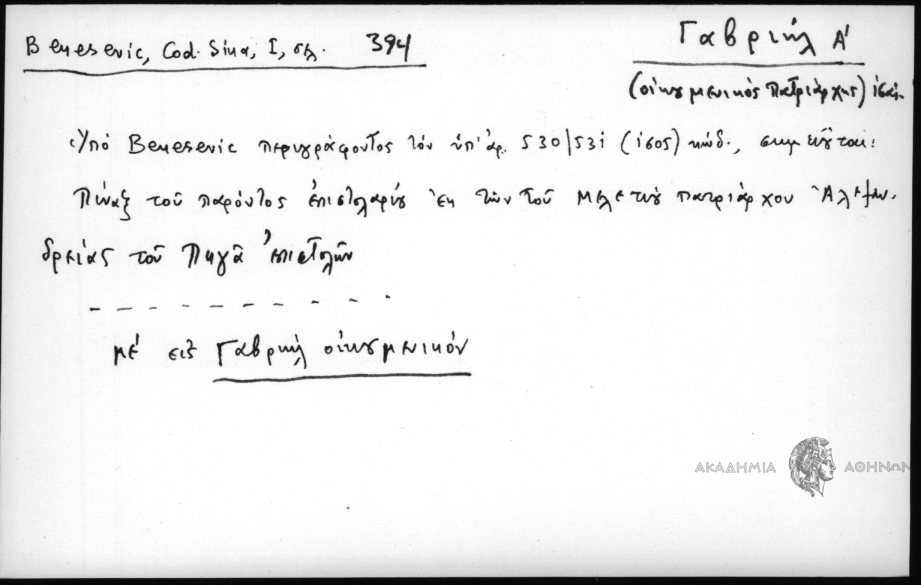 Benesevic, Cod. Sina, I, σελ. 394
Γαβριήλ Α'
(οἰκουμενικὸς Πατριάρχης)
Ὑπὸ Benesevic περιγράφοντος τὸν ὑπ' ἀρ. 530/531 (1605) κώδ., σημειοῦται:
Πίναξ τοῦ παρόντος ἐπιστολαρίου ἐκ τῶν τοῦ Μελετίου πατριάρχου Ἀλεξαν-
δρείας τοῦ Πηγᾶ ἐπιστολῶν
– – – – – – – – – –
μέ εἰς Γαβριήλ οἰκουμενικόν
ΑΚΑΔΗΜΙΑ ΑΘΗΝΩΝ